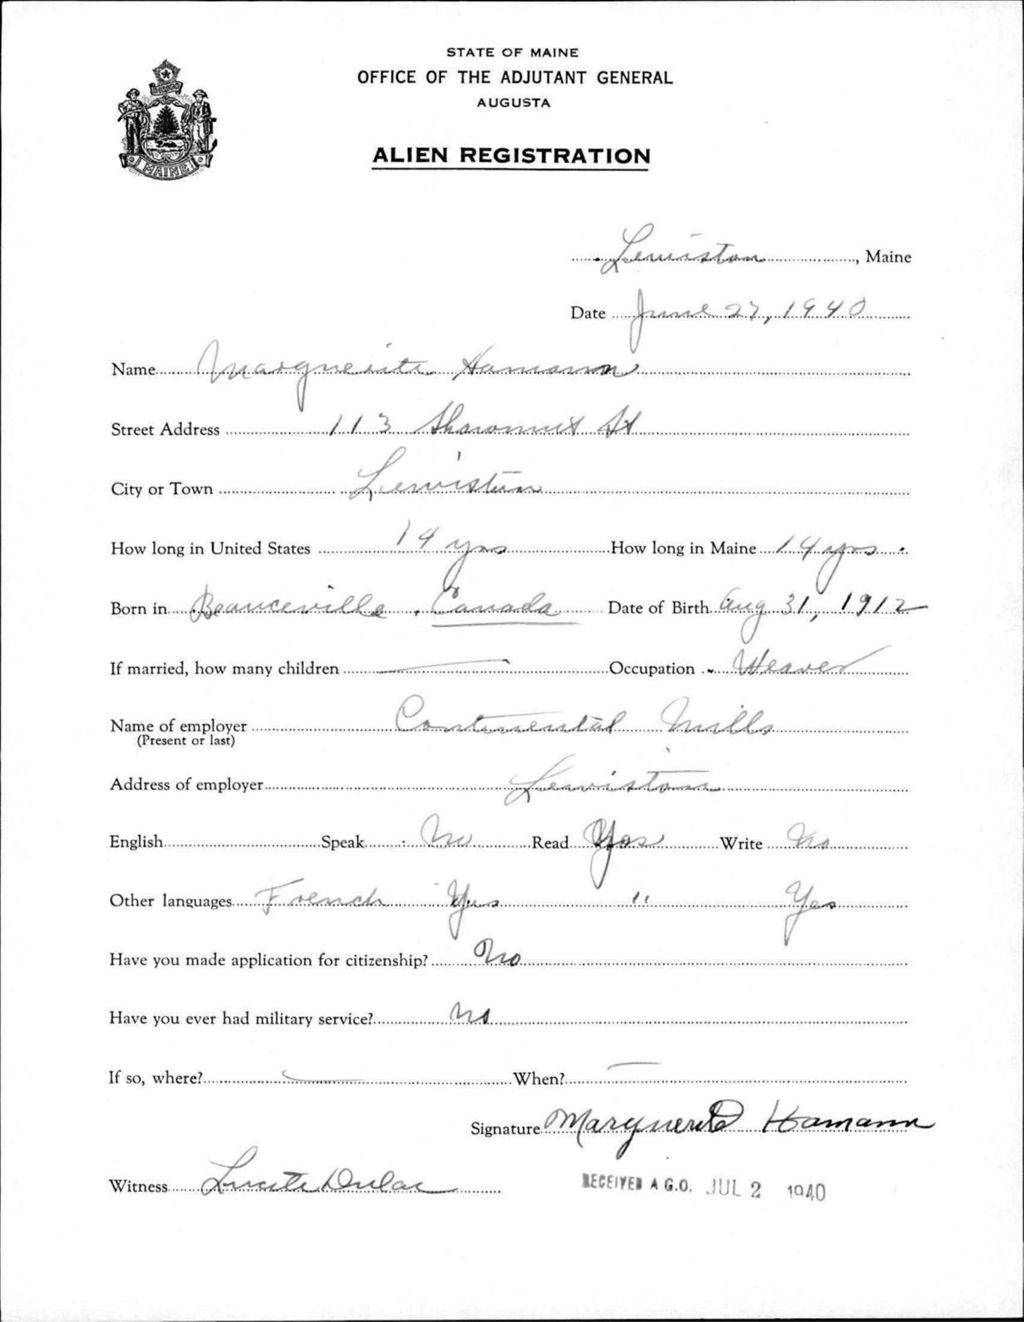 STATE OF MAINE
OFFICE OF THE ADJUTANT GENERAL
AUGUSTA
ALIEN REGISTRATION
MAINE
Lewiston, Maine
Date June 27, 1940
Name Marguerite Hamann
Street Address 113 Shawmut St
City or Town Lewiston
How long in United States 14 yrs How long in Maine 14 yrs.
Born in Beauceville, Canada Date of Birth Aug 31, 1912
If married, how many children — Occupation Weaver
Name of employer Continental Mills
(Present or last)
Address of employer Lewiston
English Speak No Read Yes Write No
Other languages French Yes " Yes
Have you made application for citizenship? No
Have you ever had military service? No
If so, where? — When? —
Signature Marguerite Hamann
Witness Lucile Dulac
RECEIVED A.G.O. JUL 2 1940